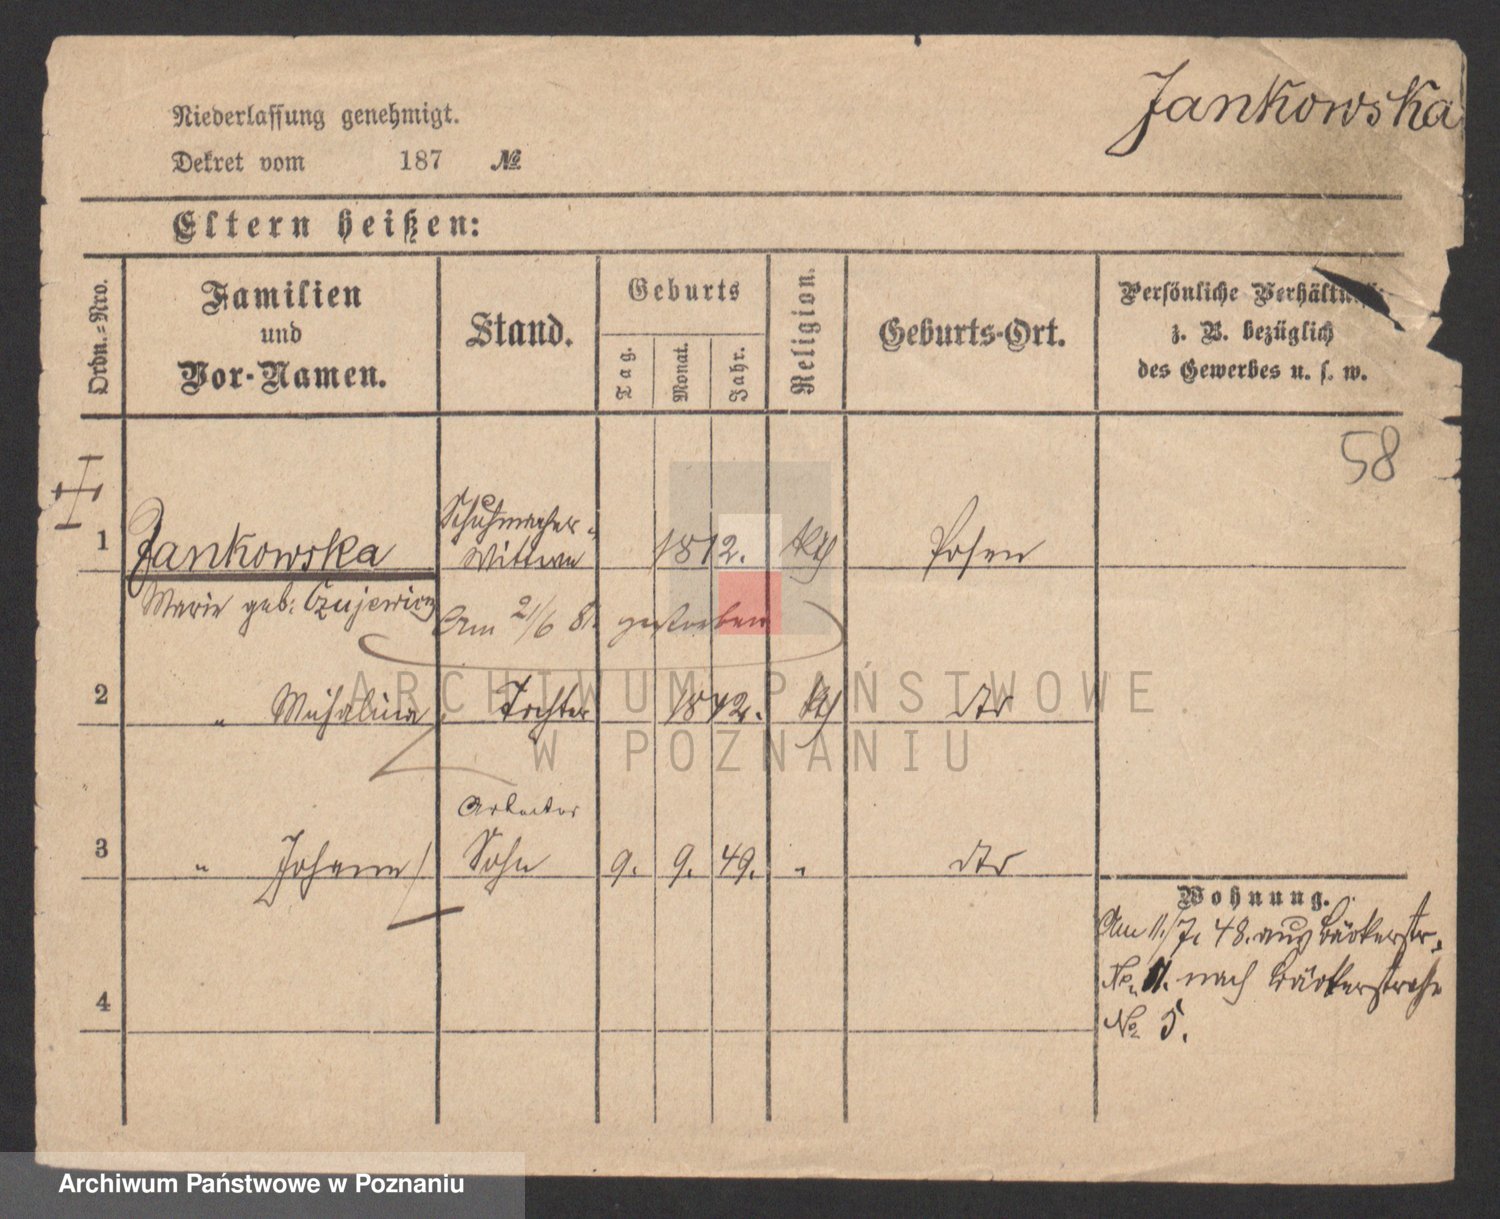 Jankowska
Niederlassung genehmigt.
Dekret vom 187 №
Eltern heißen:
Ordn.=Nro.
Familien
und
Vor-Namen.
Stand.
Geburts
Tag.
Monat.
Jahr.
Religion.
Geburts-Ort.
Persönliche
z. B. bezüglich
des Gewerbes u. s. w.
58
1 Jankowska Schuhmacher-
Wittwe 1812. kth Posen
Marie geb: Czujewicz
Am 21/6 gestorben
2 " Michalina Tochter 1842. kth dto
Arbeiter
3 " Johann Sohn 9. 9. 49. " dto
Wohnung.
Am 11./7. 78. aus Bäckerstr.
No. 11. nach Bäckerstraße
No 5.
4
ARCHIWUM PAŃSTWOWE
W POZNANIU
Archiwum Państwowe w Poznaniu